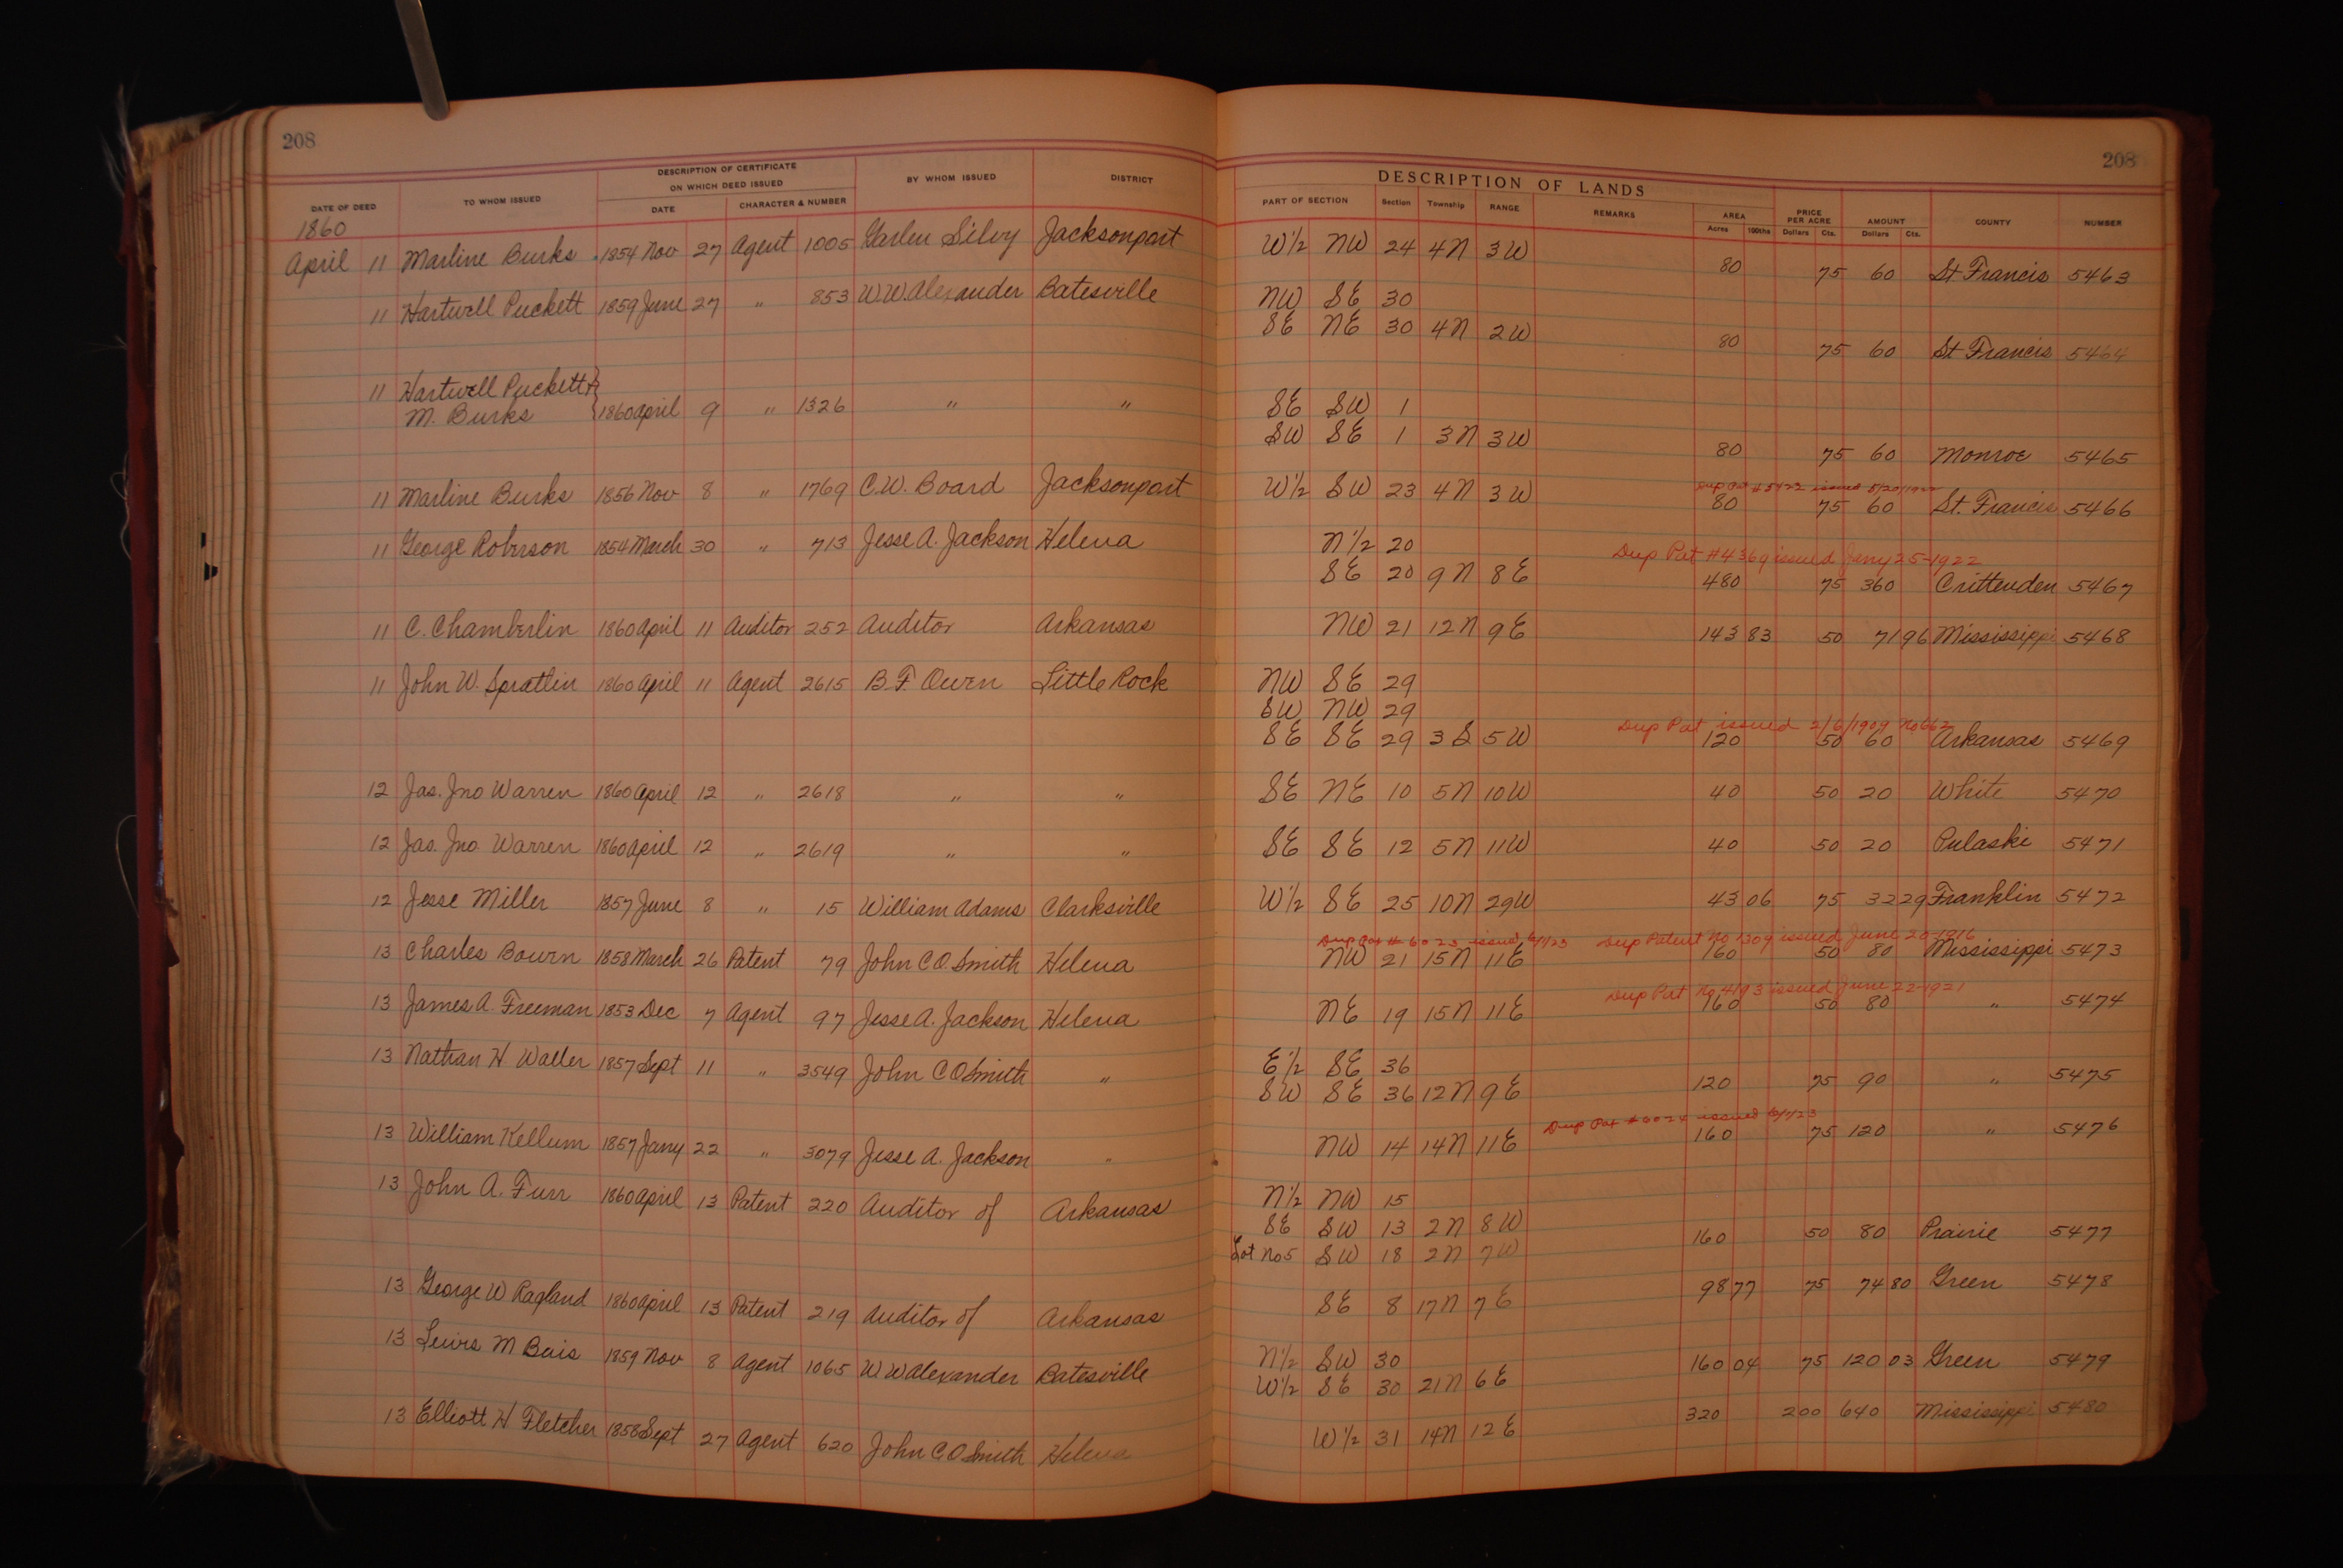 208
208
DESCRIPTION OF CERTIFICATE
ON WHICH DEED ISSUED
DATE OF DEED TO WHOM ISSUED DATE CHARACTER & NUMBER BY WHOM ISSUED DISTRICT
DESCRIPTION OF LANDS
PART OF SECTION Section Township RANGE REMARKS AREA Acres 100ths PRICE PER ACRE Dollars Cts. AMOUNT Dollars Cts. COUNTY NUMBER
1860
April 11 Marline Burks 1854 Nov 27 Agent 1005 Silvy Jacksonport W 1/2 NW 24 4N 3W 80 75 60 St Francis 5463
11 Hartwell Puckett 1859 June 27 " 853 W.W. Alexander Batesville NW SE 30
SE NE 30 4N 2W 80 75 60 St Francis 5464
11 Hartwell Puckett +
M. Burks 1860 April 9 " 1326 " " SE SW 1
SW SE 1 3N 3W 80 75 60 Monroe 5465
11 Marline Burks 1856 Nov 8 " 1769 C.W. Board Jacksonport W 1/2 SW 23 4N 3W 80 75 60 St. Francis 5466
Dup Pat # 5422 issued
11 George Roberson 1854 March 30 " 713 Jesse A. Jackson Helena N 1/2 20
Dup Pat #4369 issued Jany 25-1922
SE 20 9N 8E 480 75 360 Crittenden 5467
11 C. Chamberlin 1860 April 11 Auditor 252 Auditor Arkansas NW 21 12N 9E 143 83 50 71 96 Mississippi 5468
11 John W. Spratlin 1860 April 11 Agent 2615 B.F. Owen Little Rock NW SE 29
SW NW 29
Dup Pat issued 2/6/1909 No 662
SE SE 29 3S 5W 120 50 60 Arkansas 5469
12 Jas. Jno Warren 1860 April 12 " 2618 " " SE NE 10 5N 10W 40 50 20 White 5470
12 Jas. Jno Warren 1860 April 12 " 2619 " " SE SE 12 5N 11W 40 50 20 Pulaski 5471
12 Jesse Miller 1857 June 8 " 15 William Adams Clarksville W 1/2 SE 25 10N 29W 43 06 75 32 29 Franklin 5472
Dup Pat # 6023 issued Dup Patent No 1309 issued June 20-1916
13 Charles Bourn 1858 March 26 Patent 79 John C.O. Smith Helena NW 21 15N 11E 160 50 80 Mississippi 5473
Dup Pat No 4193 issued June 22-1921
13 James A. Freeman 1853 Dec 7 Agent 97 Jesse A. Jackson Helena NE 19 15N 11E 160 50 80 " 5474
13 Nathan H Waller 1857 Sept 11 " 3549 John C O Smith " E 1/2 SE 36
SW SE 36 12N 9E 120 75 90 " 5475
Dup Pat # 6024 issued
13 William Kellum 1857 Jany 22 " 3079 Jesse A. Jackson " NW 14 14N 11E 160 75 120 " 5476
13 John A. Furr 1860 April 13 Patent 220 Auditor of Arkansas N 1/2 NW 15
SE SW 13 2N 8W 160 50 80 Prairie 5477
Lot No 5 SW 18 2N 7W
13 George W Ragland 1860 April 13 Patent 219 Auditor of Arkansas SE 8 17N 7E 98 77 75 74 80 Green 5478
13 Lewis M 1859 Nov 8 Agent 1065 W.W Alexander Batesville N 1/2 SW 30
W 1/2 SE 30 21N 6E 160 04 75 120 03 Green 5479
13 Elliott H Fletcher 1858 Sept 27 Agent 620 John C O Smith Helena W 1/2 31 14N 12E 320 200 640 Mississippi 5480